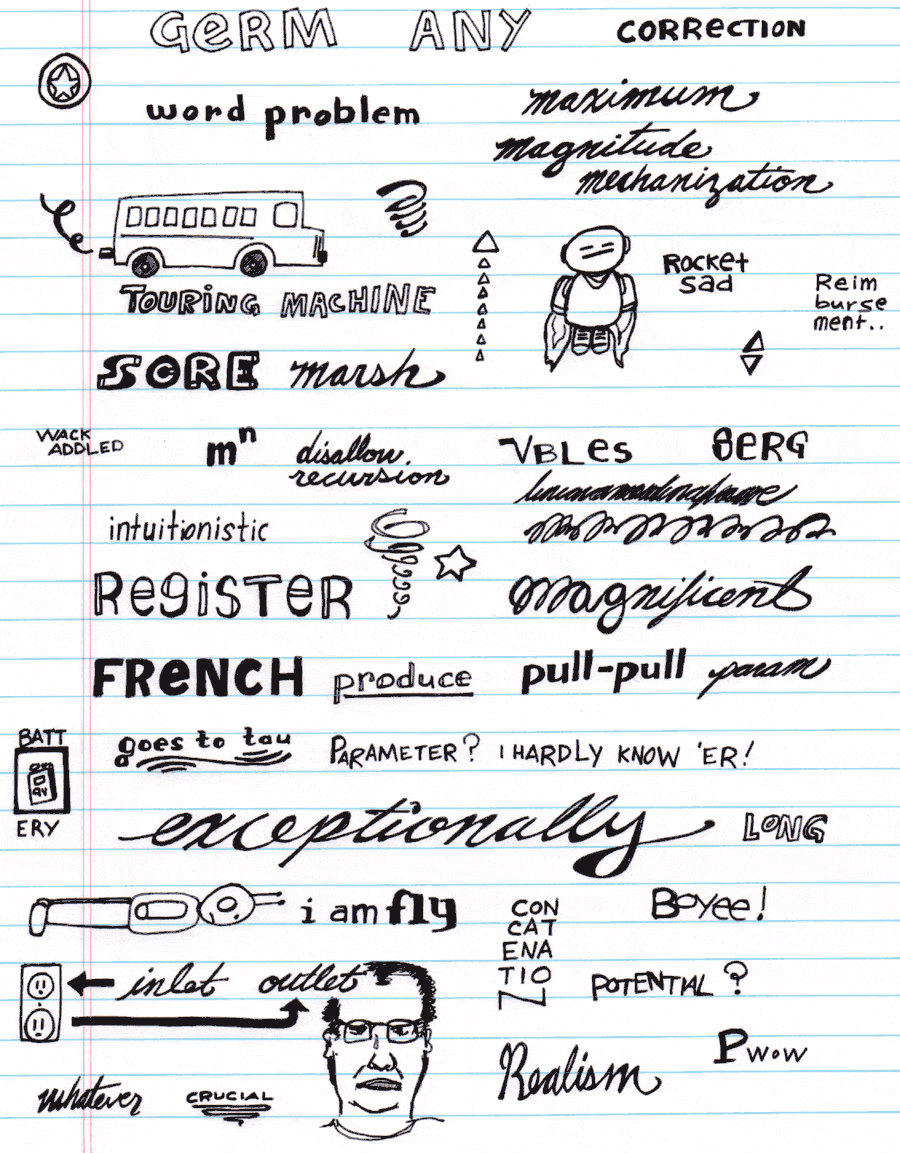 GeRM ANY
CORRECTION
word problem
maximum
magnitude
mechanization
TOURING MACHINE
ROCKeT
SaD
Reim
burse
ment..
SCORE marsh
WACK
ADDLED
mⁿ
disallow.
recursion
VBLes
BERG
intuitionistic
RegiSTeR
Magnificent
FReNCH produce
pull-pull param
BATT
9V
ERY
goes to tau
PARAMETER? I HARDLY KNOW 'ER!
exceptionally LONG
i am fly
CON
CAT
ENA
TIO
N
Boyee!
inlet outlet
POTENTIAL?
Realism
Pwow
whatever
CRUCIAL